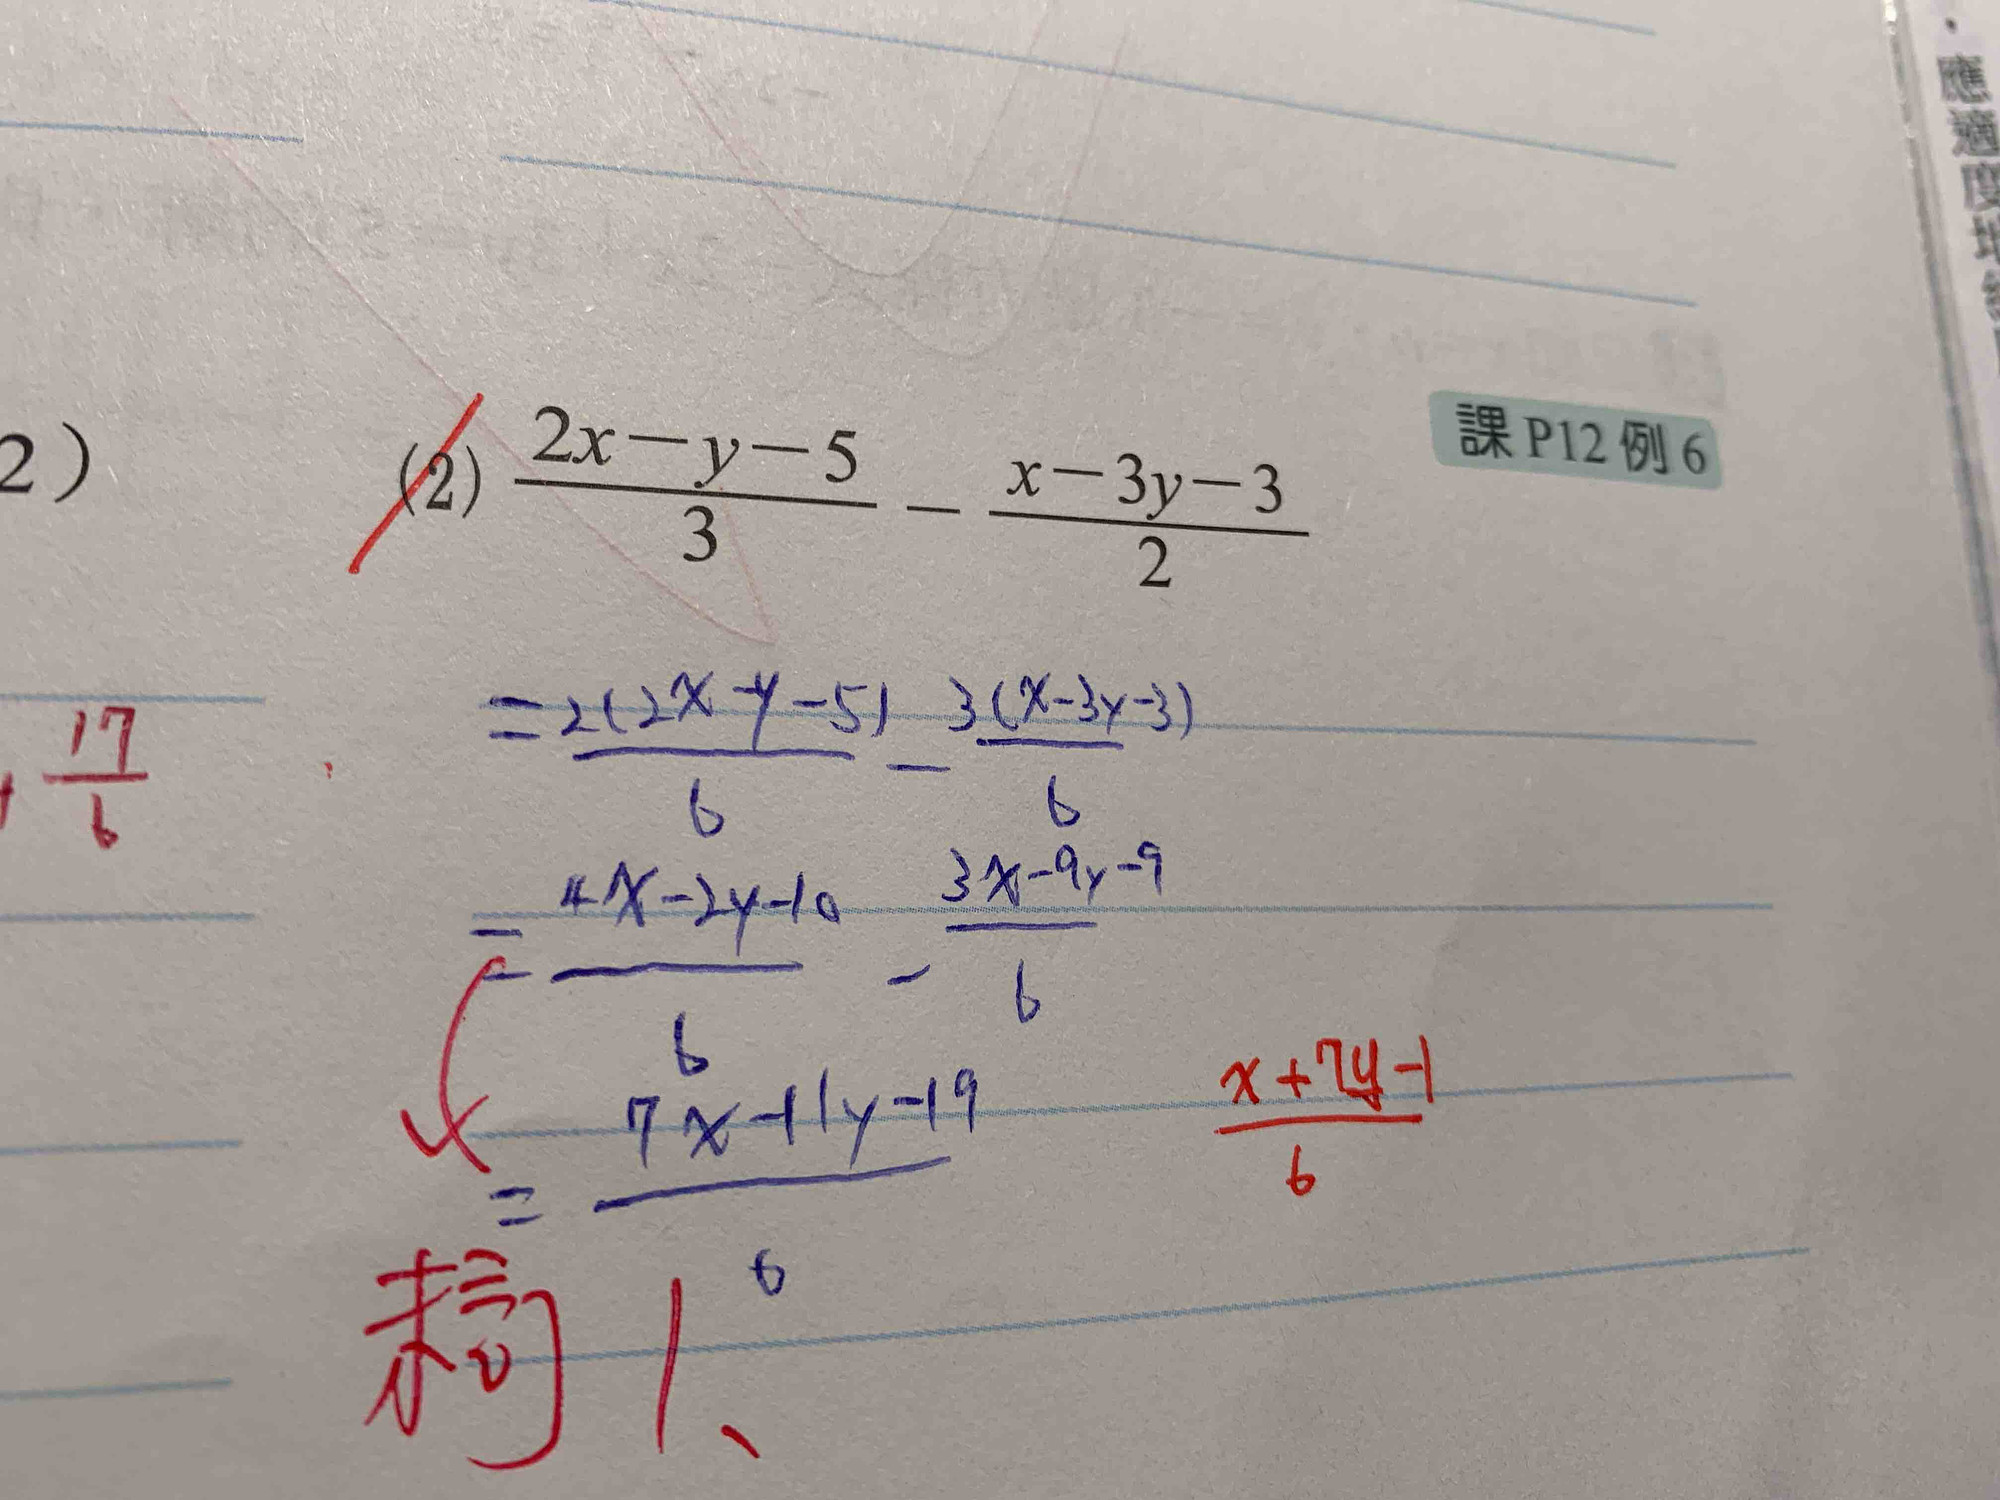 2)
(2) (2x-y-5)/3 - (x-3y-3)/2
課 P12 例 6
= 2(2x-y-5)/6 - 3(x-3y-3)/6
17/6
= 4x-2y-10/6 - 3x-9y-9/6
= 7x-11y-19/6
x+7y-1/6
1、
應適度